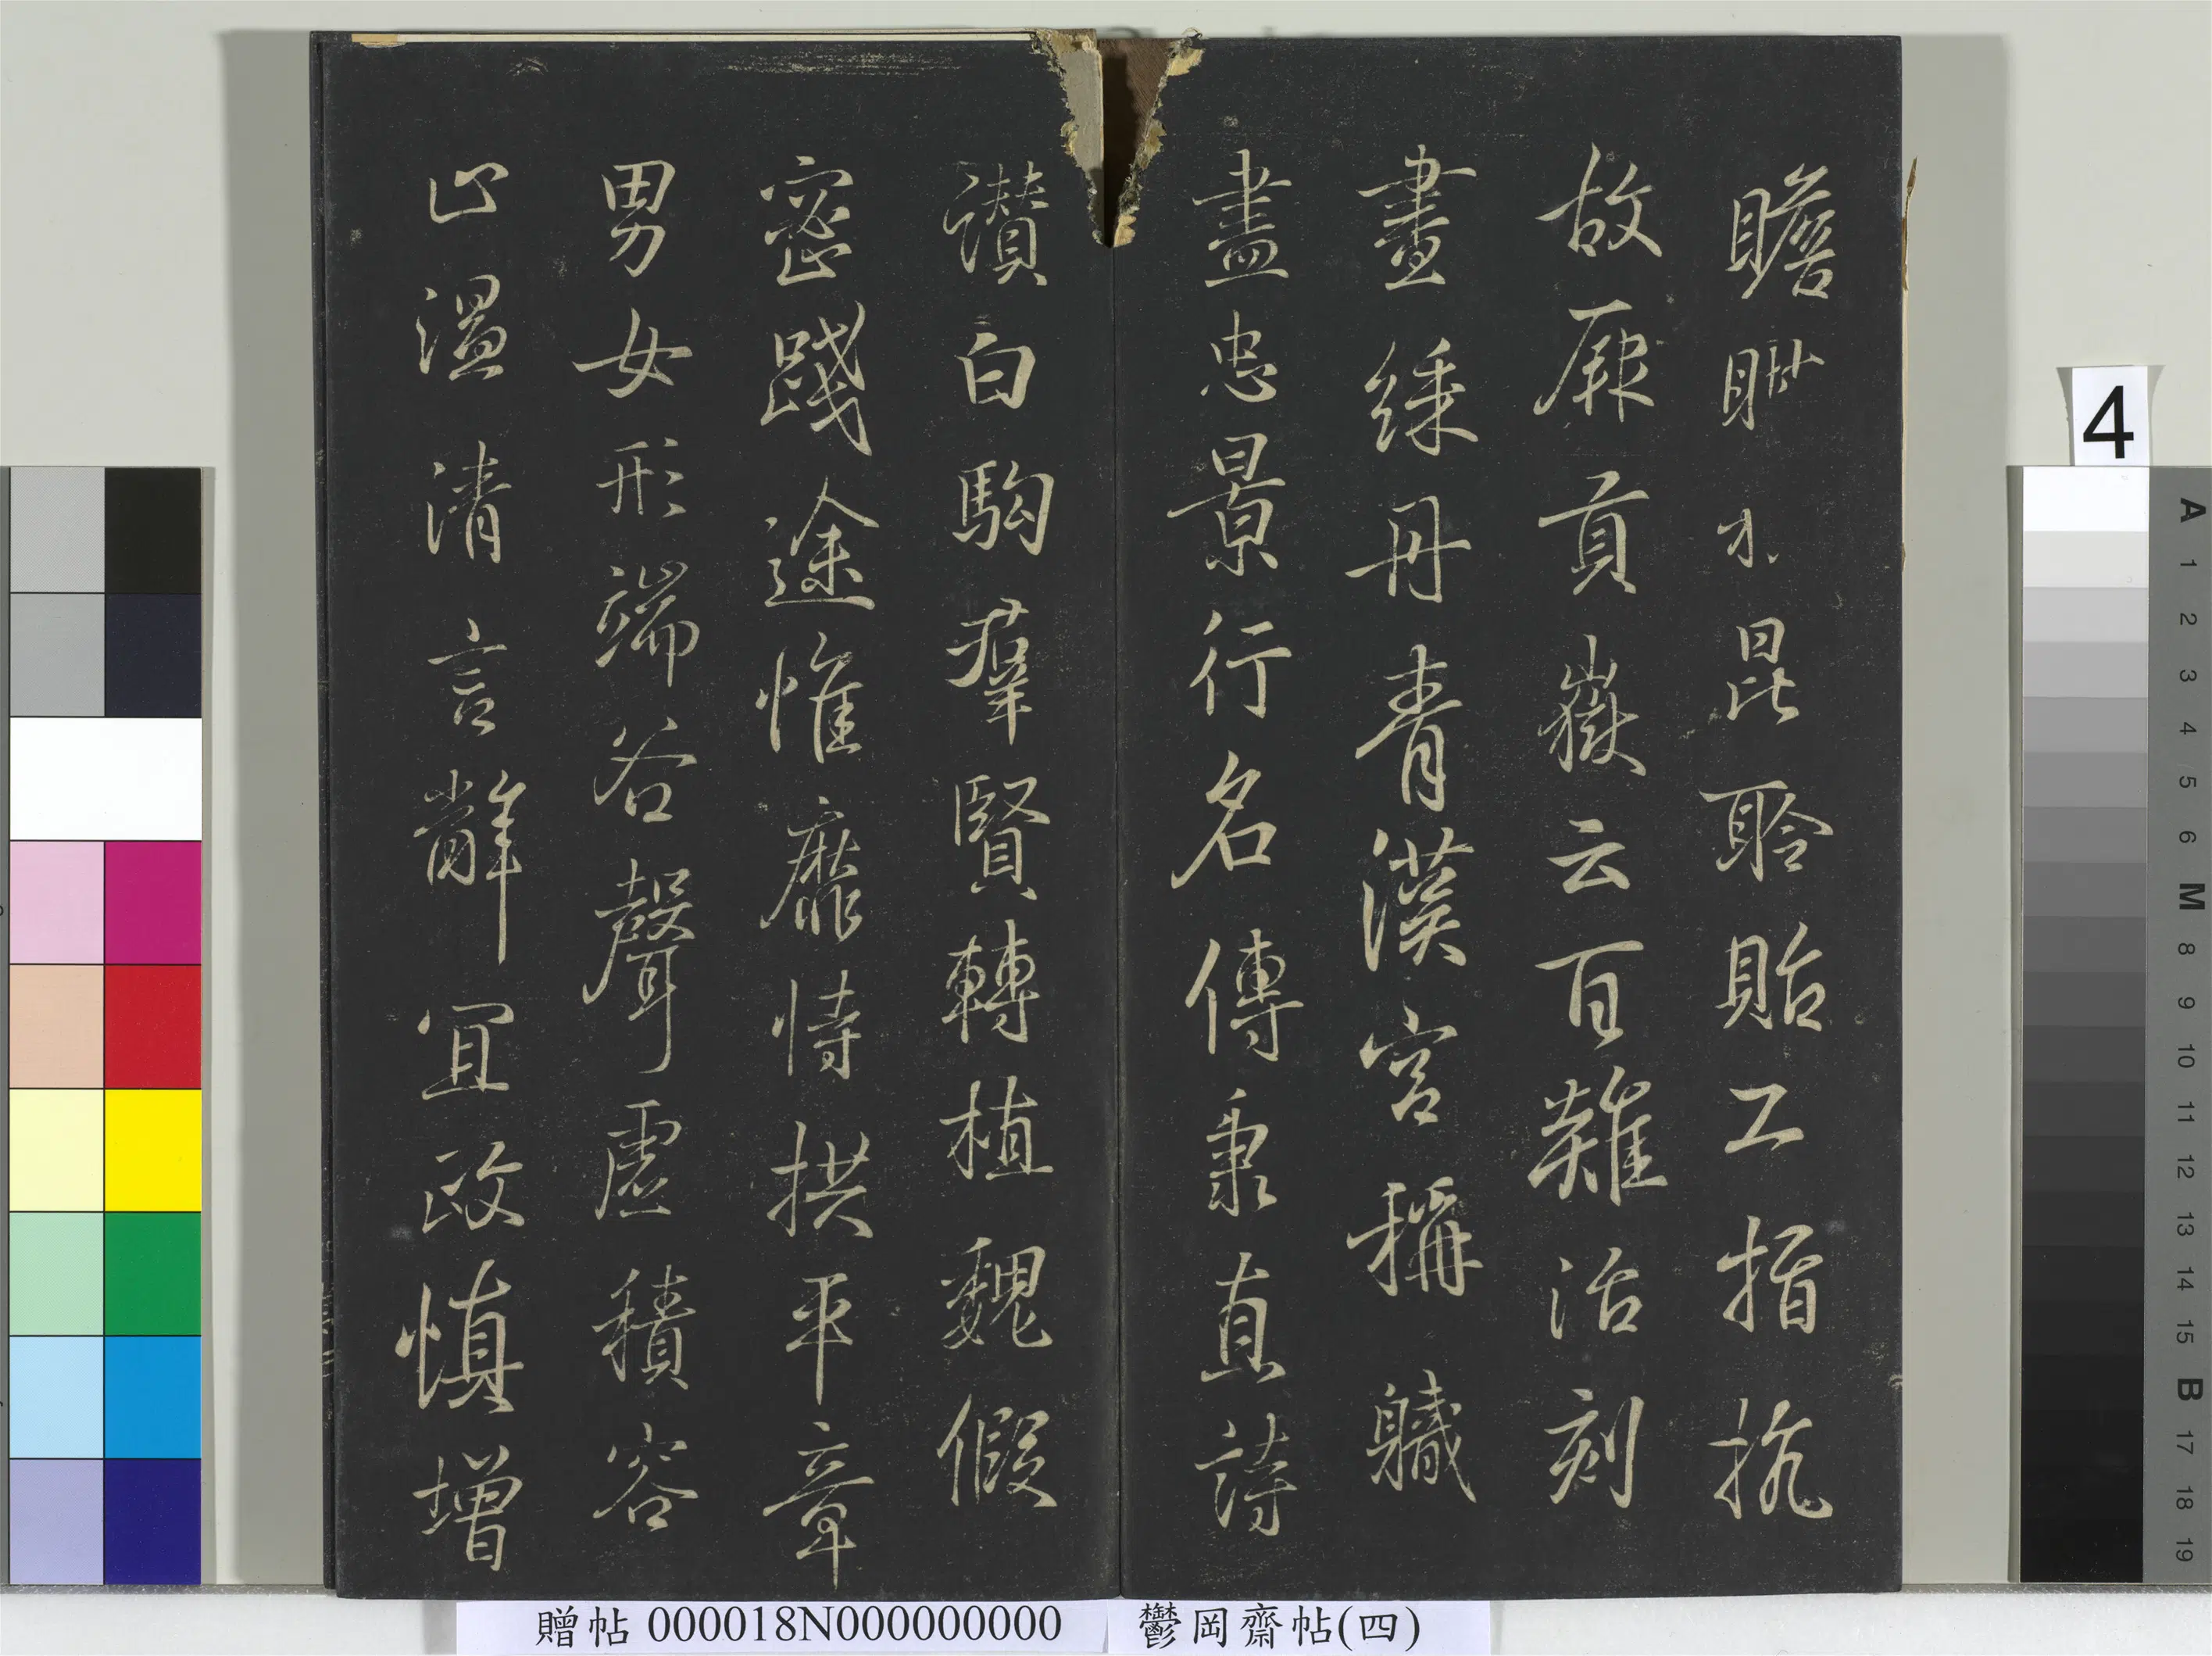 瞻眺水昆聆貽工指抗
故厥貢嶽云百難治刻
畫綵丹青漢宮稱軄
盡忠景行名傳秉直詩
讚白駒羣賢轉植魏假
密踐途惟靡恃拱平章
男女形端谷聲虛積容
止溫清言辭宜政慎增
贈帖 000018N000000000 鬱岡齋帖(四)
4
A 1 2 3 4 5 6 M 8 9 10 11 12 13 14 15 B 17 18 19